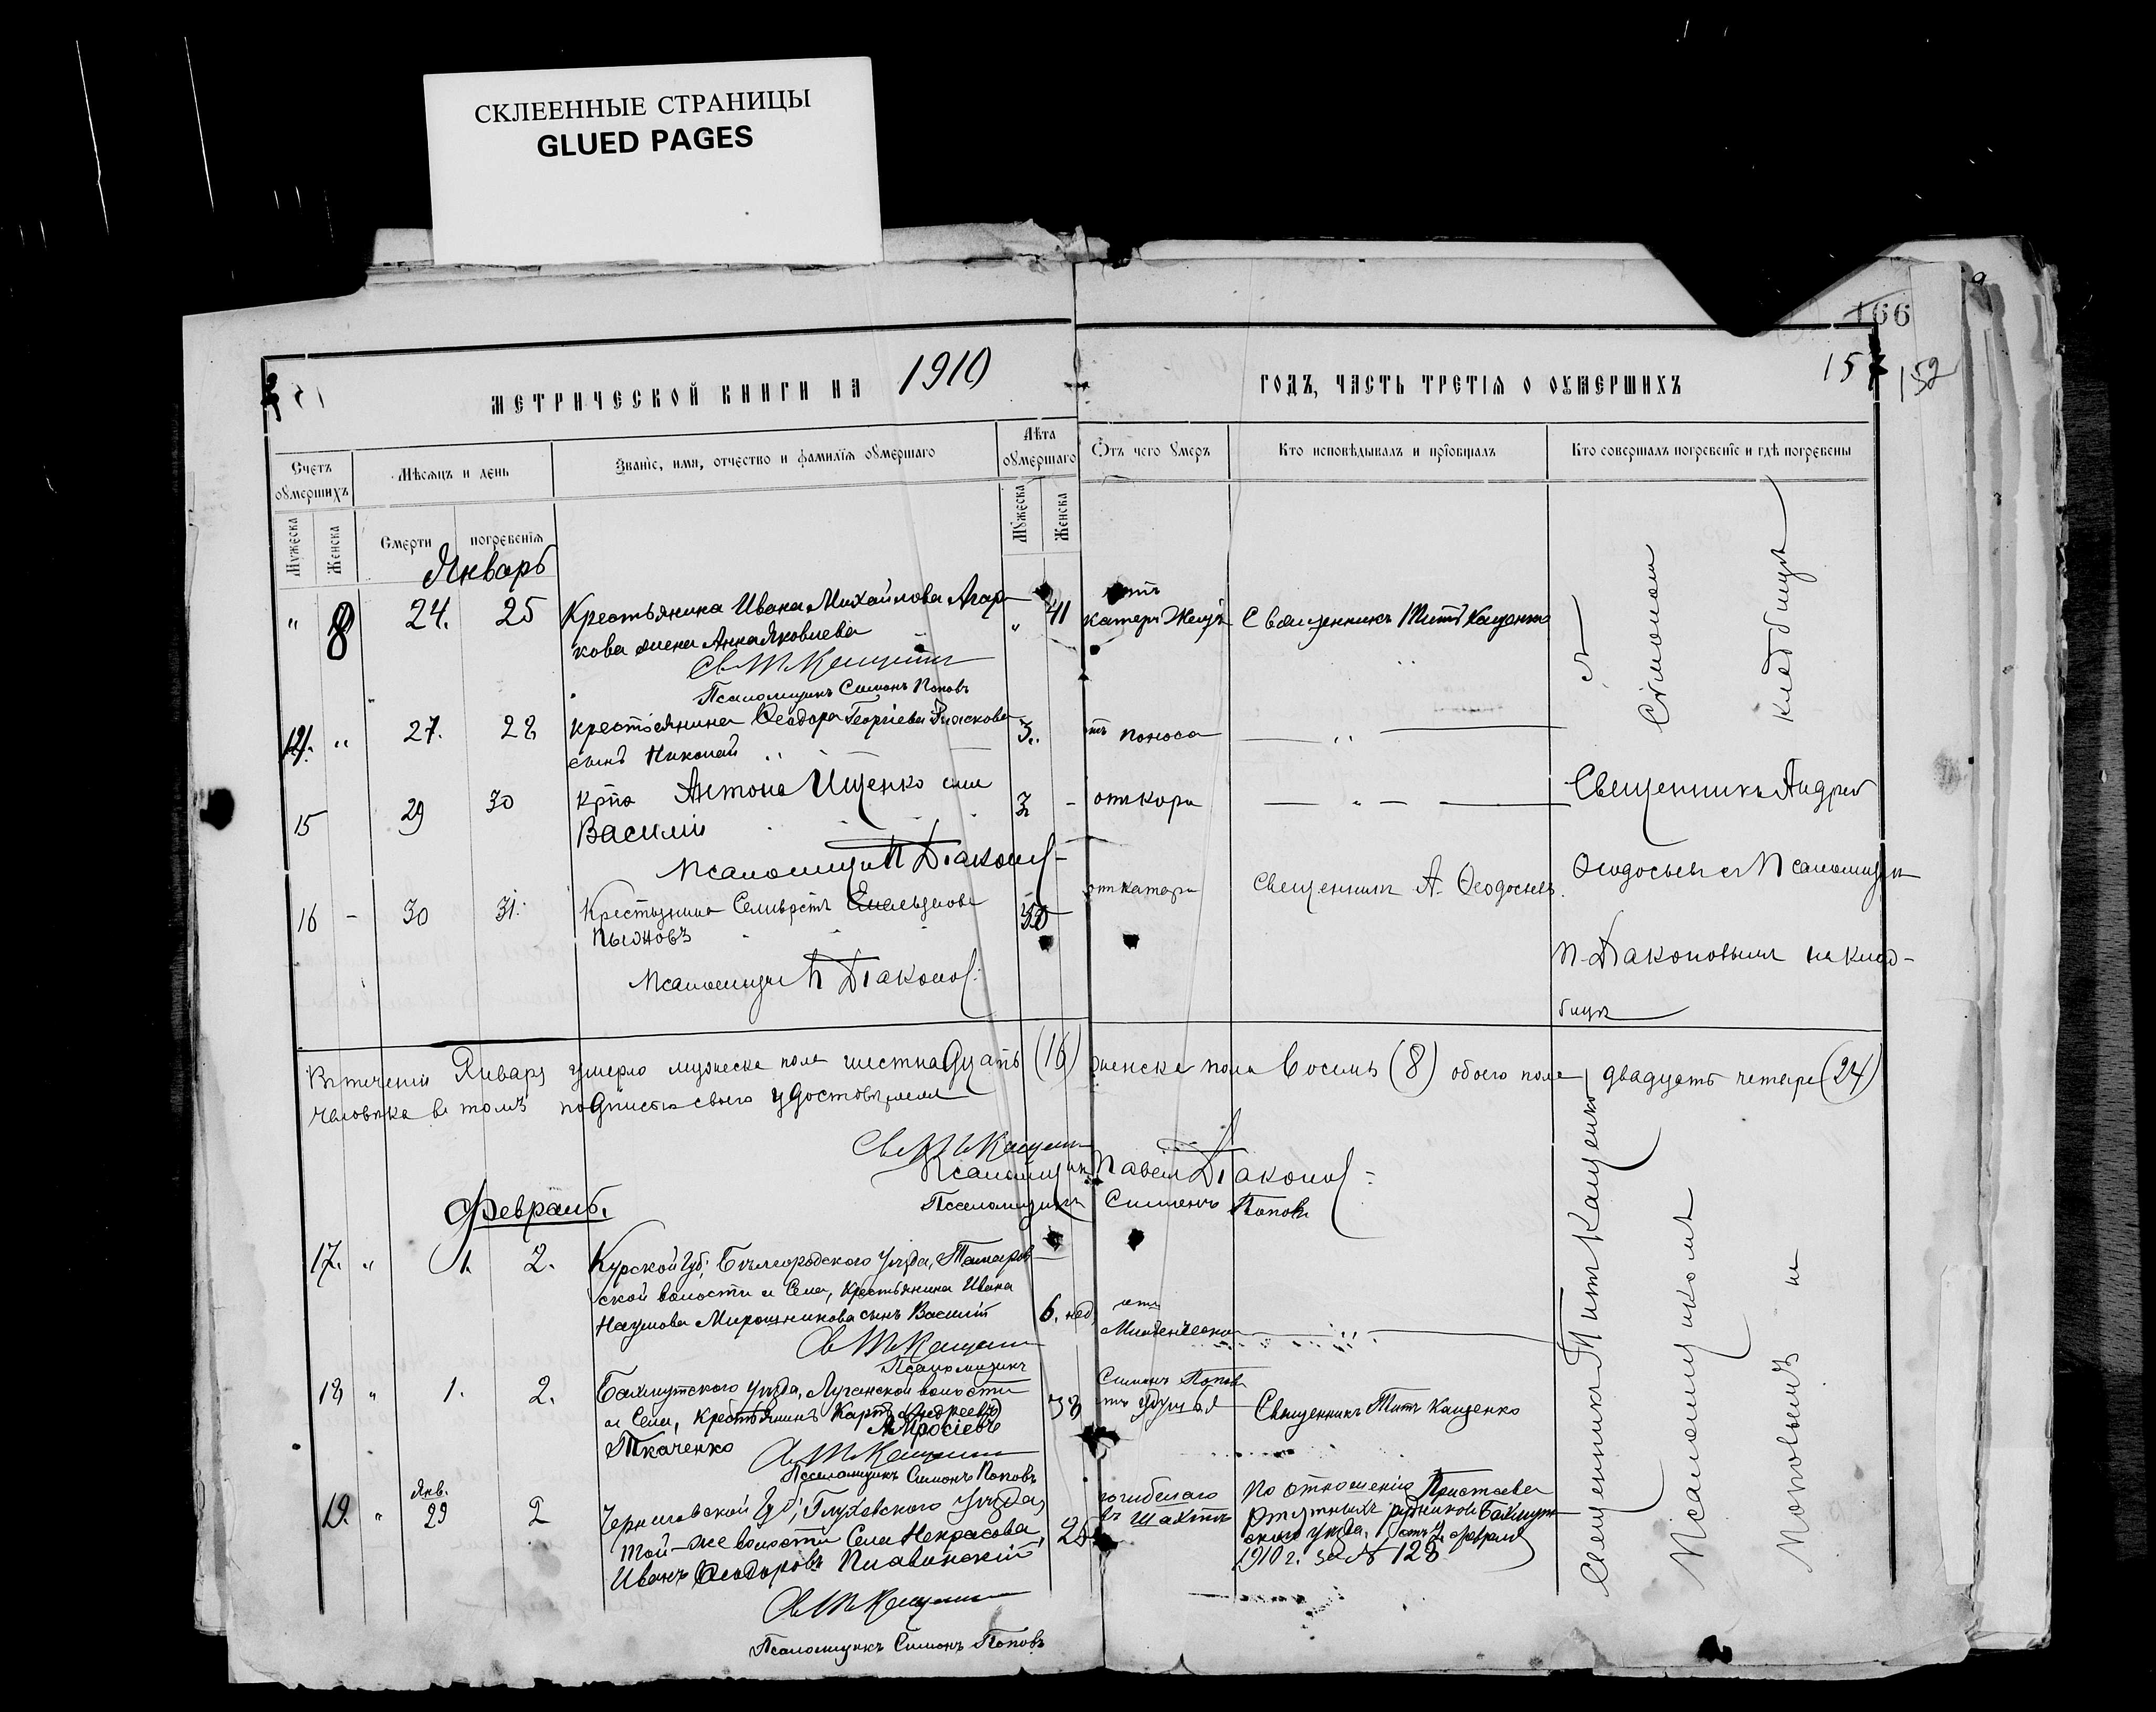 СКЛЕЕННЫЕ СТРАНИЦЫ
GLUED PAGES
166
МЕТРИЧЕСКОЙ КНИГИ НА 1910
ГОДЪ, ЧАСТЬ ТРЕТІЯ О ОУМЕРШИХЪ
152
Счетъ оумершихъ
Мѣсяцъ и день
Званіе, имя, отчество и фамилія оумершаго
Лѣта оумершаго
Отъ чего умеръ
Кто исповѣдывалъ и пріобщалъ
Кто совершалъ погребеніе и гдѣ погребены
Мужеска
Женска
Смерти
погребенія
Мужеска
Женска
Январь
" 8 24. 25 Крестьянина Ивана Михайлова Агар
кова жена Анна Яковлева
" 41
катер. Желуд.
Священникъ Титъ Кащенко
Псаломщикъ Симонъ Поповъ
" 27. 28 крестьянина Ѳеодора Георгіева
сынъ Николай
3.
отъ поноса
15 29 30 Крна Антона Ищенко сын
Василій
3 -
от кори
Псаломщикъ П Діаконов
16 - 30 31. Крестьянинъ Селиверстъ
от катара
Священникъ А. Ѳеодосьев.
Псаломщикъ П Діаконов
Священникъ Андрей
Ѳеодосьев с Псаломщик
П. Діаконовымъ на клад-
бищѣ
Симоном
кладбищѣ
Въ теченіи Январѣ умерло мужеска пола шестнадцать (16) женска пола восемь (8) обоего пола двадцать четыре (24)
человѣка въ томъ подписью своею удостовѣряемъ
Св Т Кащенко
Псаломщик Павелъ Діаконов
Псаломщикъ Симонъ Поповъ
Февраль.
17. " 1. 2. Курской Губ., Бѣлгородского Уѣзда, Томаров
ской волости и Села, Крестьянина Ивана
Наумова Мирошникова сынъ Василій
6. нед.
отъ
Младенческой
Св Т Кащенко
Псаломщикъ Симонъ Поповъ
18 " 1. 2. Бахмутского уѣзда, Луганской волости
и Села, Крестьянинъ Карпъ Андреевъ
Амросіевъ
Ткаченко
38
отъ удушья
Священникъ Титъ Кащенко
Св Т Кащенко
Псаломщикъ Симонъ Поповъ
19. " Янв. 29 2 Черниговской Губ., Глуховского Уѣзда,
той-же волости Села Некрасова,
Иванъ Ѳеодоровъ Плавинскій
погибшаго
въ шахтѣ
По отношенію Пристава
Ртутныхъ рудников Бахмут
ского уѣзда, отъ 2 февраля
1910 г. за № 128
Св Т Кащенко
Псаломщикъ Симонъ Поповъ
Священникъ Титъ Кащенко
Псаломщикомъ
Поповымъ на